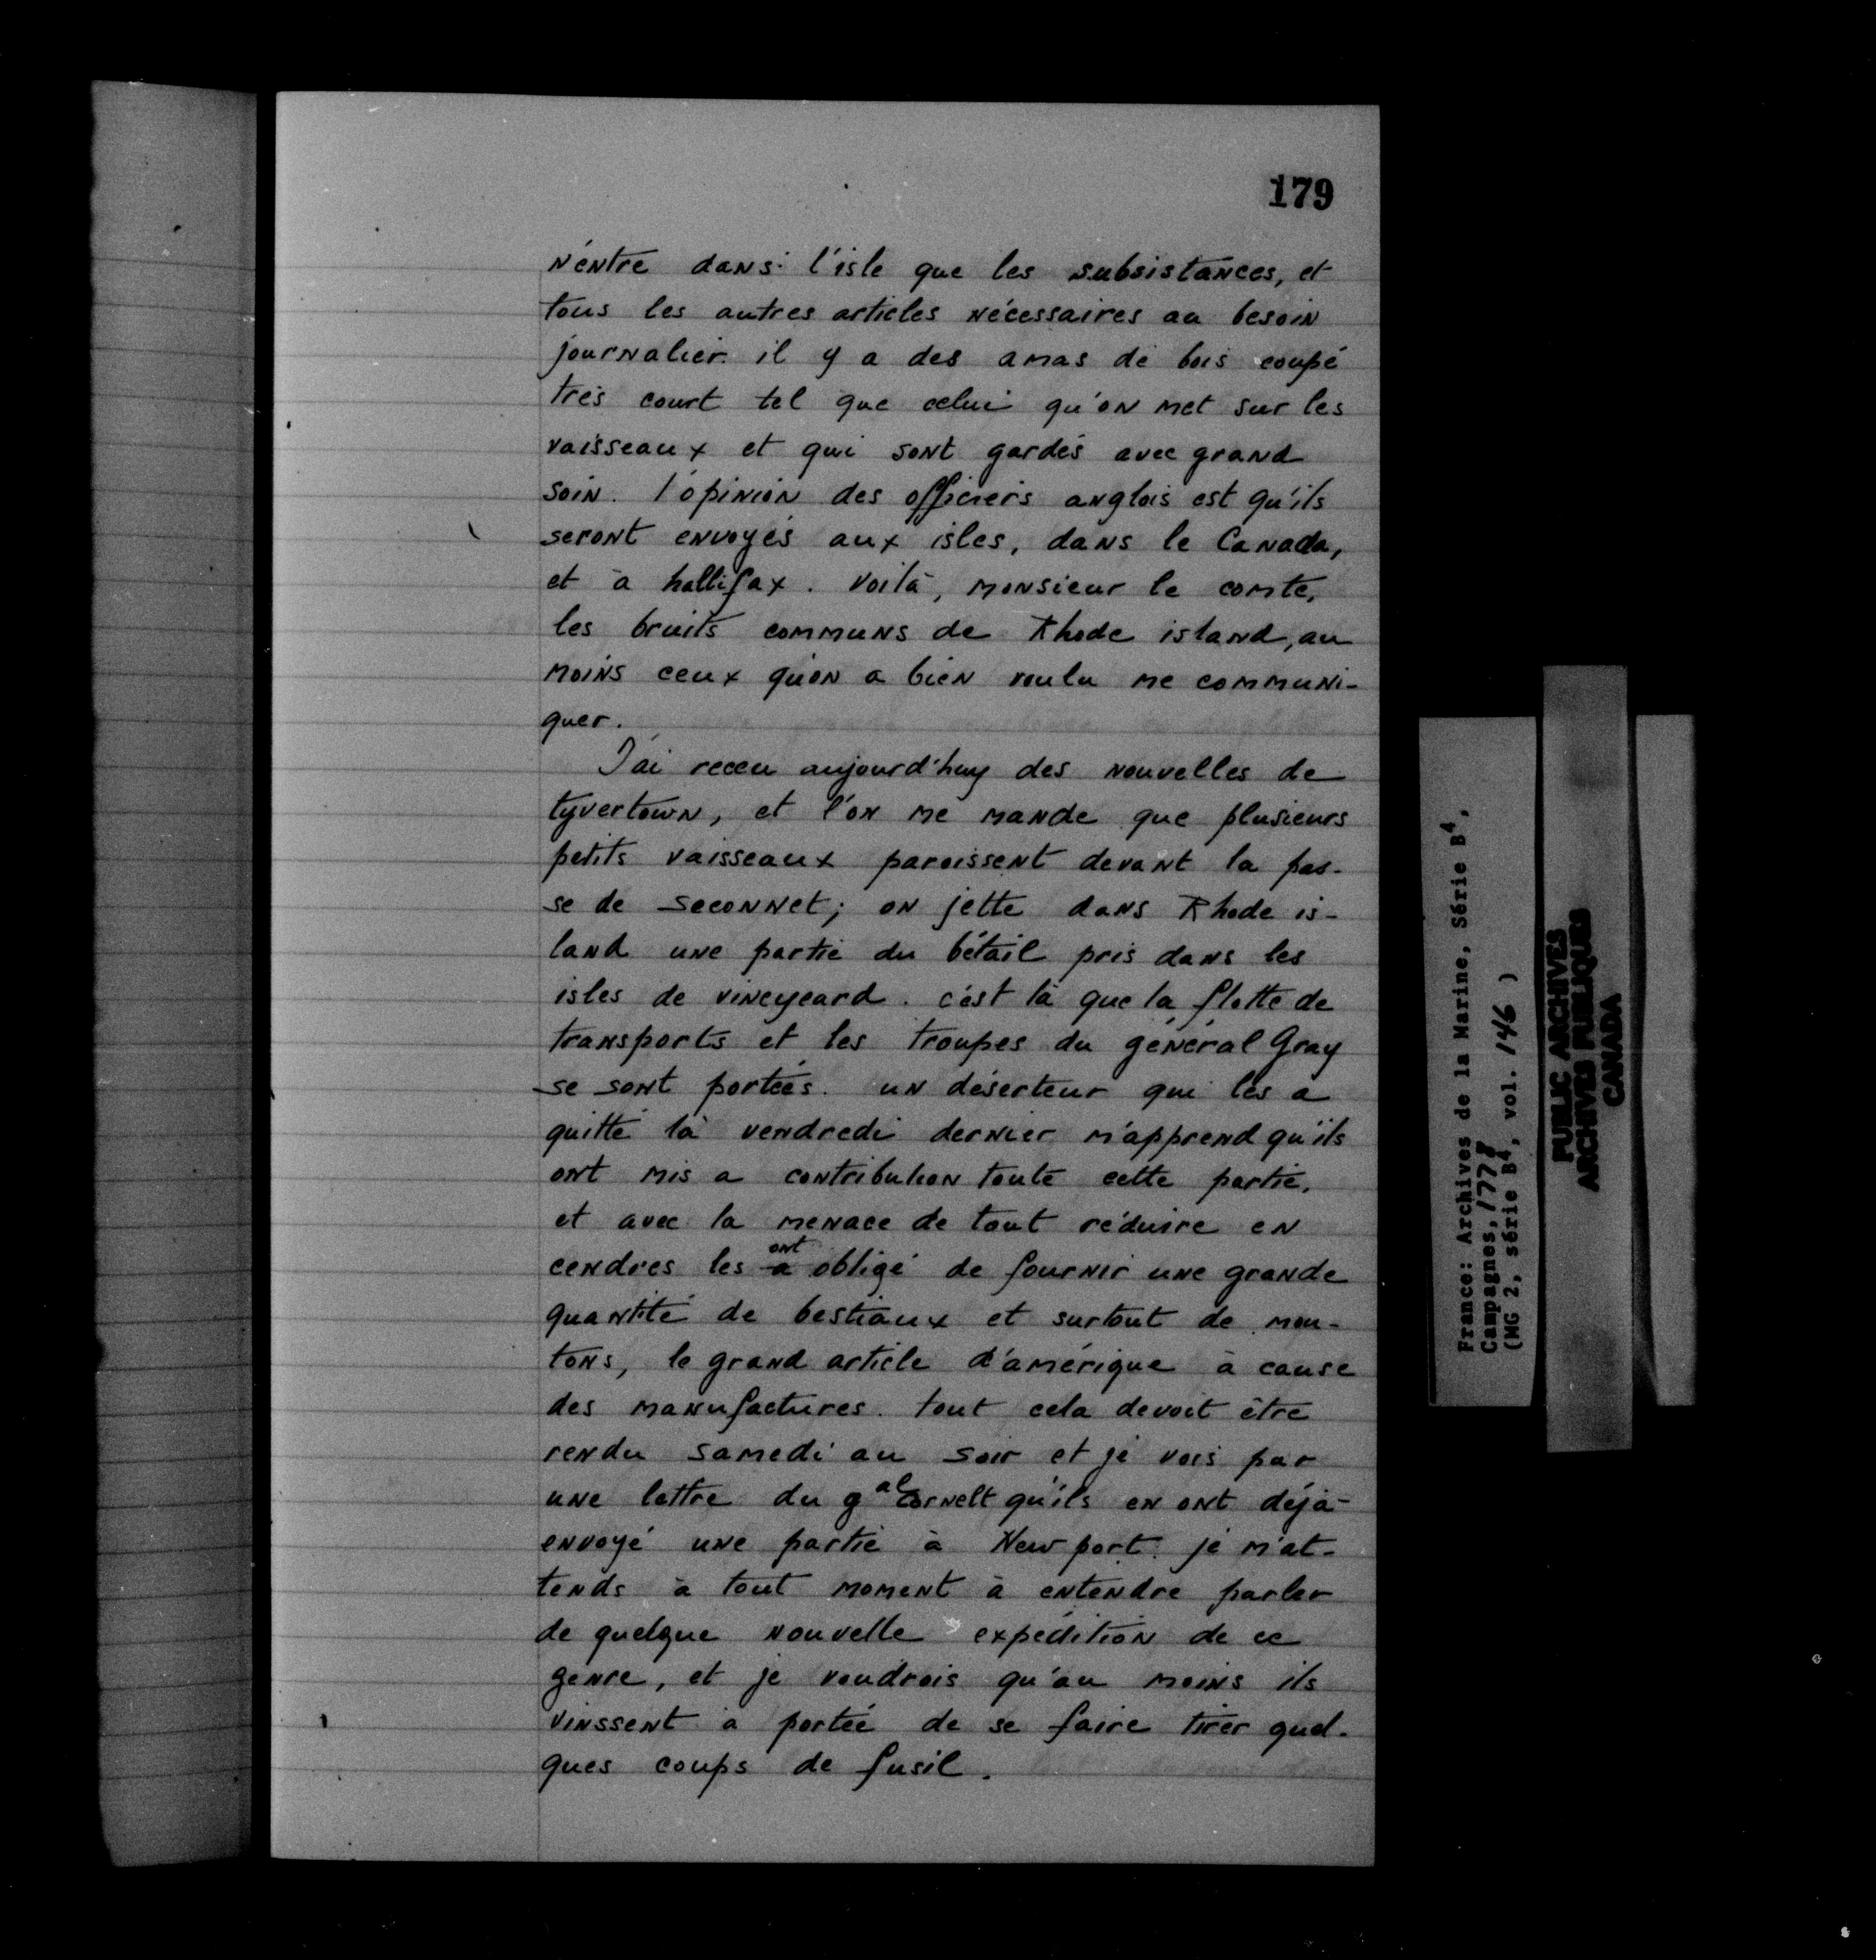 179
n'entre dans l'isle que les subsistances, et
tous les autres articles nécessaires au besoin
journalier. il y a des amas de bois coupé
très court tel que celui qu'on met sur les
vaisseaux et qui sont gardés avec grand
soin. l'opinion des officiers anglois est qu'ils
seront envoyés aux isles, dans le Canada,
et à hallifax. Voilà, monsieur le comte,
les bruits communs de Rhode island, au
moins ceux qu'on a bien voulu me communi-
quer.
J'ai receu aujourd'huy des nouvelles de
tyvertown, et l'on me mande que plusieurs
petits vaisseaux paroissent devant la pas-
se de seconnet; on jette dans Rhode is-
land une partie du bétail pris dans les
isles de vineyeard. c'est là que la flotte de
transports et les troupes du général Gray
se sont portées. un déserteur qui les a
quitté là vendredi dernier m'apprend qu'ils
ont mis a contribution toute cette partie,
et avec la menace de tout réduire en
cendres les a ont obligé de fournir une grande
quantité de bestiaux et surtout de mou-
tons, le grand article d'amérique à cause
des manufactures. tout cela devoit être
rendu samedi au soir et je vois par
une lettre du gal Cornell qu'ils en ont déjà
envoyé une partie à Newport. je m'at-
tends à tout moment à entendre parler
de quelque nouvelle expédition de ce
genre, et je voudrois qu'au moins ils
vinssent à portée de se faire tirer quel-
ques coups de fusil.
France: Archives de la Marine, Série B4,
Campagnes, 1778
(MG 2, série B4, vol. 146 )
PUBLIC ARCHIVES
ARCHIVES PUBLIQUES
CANADA